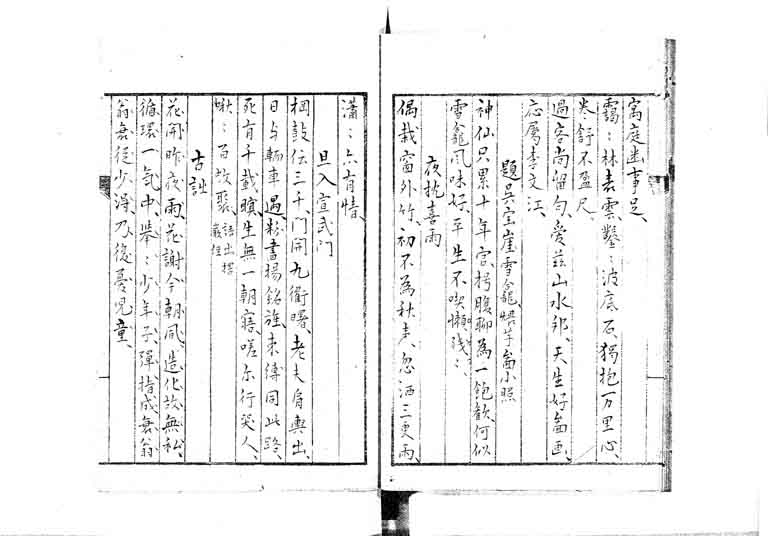 寓庭幽事足、
靄﹕林表雲、鑿﹕波底石、獨抱一万里心、
卷舒不盈尺、
過客尚留句、愛茲山水邦、天生好畲画、
応屬李文江、
題吳宝崖雪龕煨芋畲小照
神仙只累十年宮、枵腹聊為一飽歡、何似
雪龕風味好、平生不喫懶残﹕、
夜枕喜雨
偶栽窗外竹、初不為秋声、忽洒三更雨、
瀟﹕六有情、
旦入宣武門
棡鼓伝三千、門開九衢曙、老夫肩輿出、
日与輀車遇、粉書揚銘旌、来縛同此路、
死有千載、賦生無一朝寤、嗟尓行哭人、
啾﹕百故聚、
語出揚
嚴侄
古詋
花開昨夜雨、花謝今朝風、造化故無私、
循環一気中、举﹕少年子、彈指成衰翁
翁衰従少得、乃復憂児童、